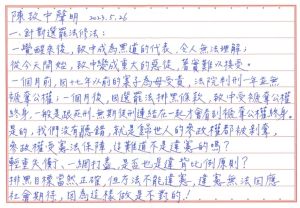 陳致中聲明 2023.5.26
一、針對選罷法修法:
一覺醒來後,致中成為黑道的代表,令人無法理解;
從今天開始,致中變成重大的惡徒,著實難以接受。
一個月前,因十七年以前的案子為母受責,法院判刑一年並無
褫奪公權;一個月後,因選罷法排黑條款,致中受褫奪公權
終身。一般是跟死刑、無期徒刑連結在一起才會看到褫奪公權終身。
是的,我們沒有聽錯,就是歸他人的參政權都被剝奪,
參政權受憲法保障,這難道不是違憲的嗎?
輕重失衡、一網打盡,是否也是違背比例原則?
排黑目標當然正確,但方法不能違憲,違憲無法回應
社會期待,因為這樣做是不對的!